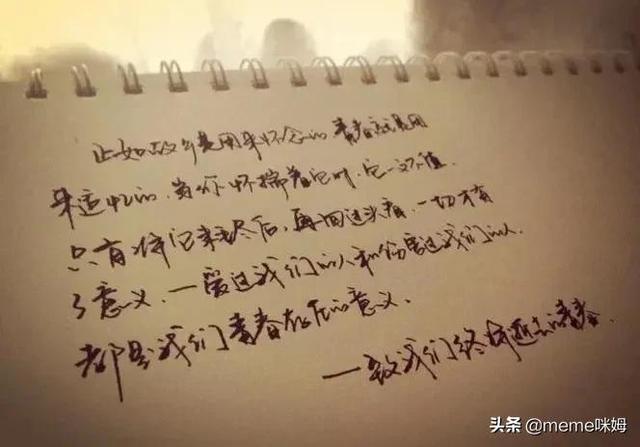 正如故乡是用来怀念的,青春就是用
来追忆的,当你怀揣着它时,它一文不值.
只有将它耗尽后,再回过头看,一切才有
了意义.一爱过我们的人和伤害过我们的人
都是我们青春存在的意义.
—致我们终将逝去的青春.
头条 @meme咪姆